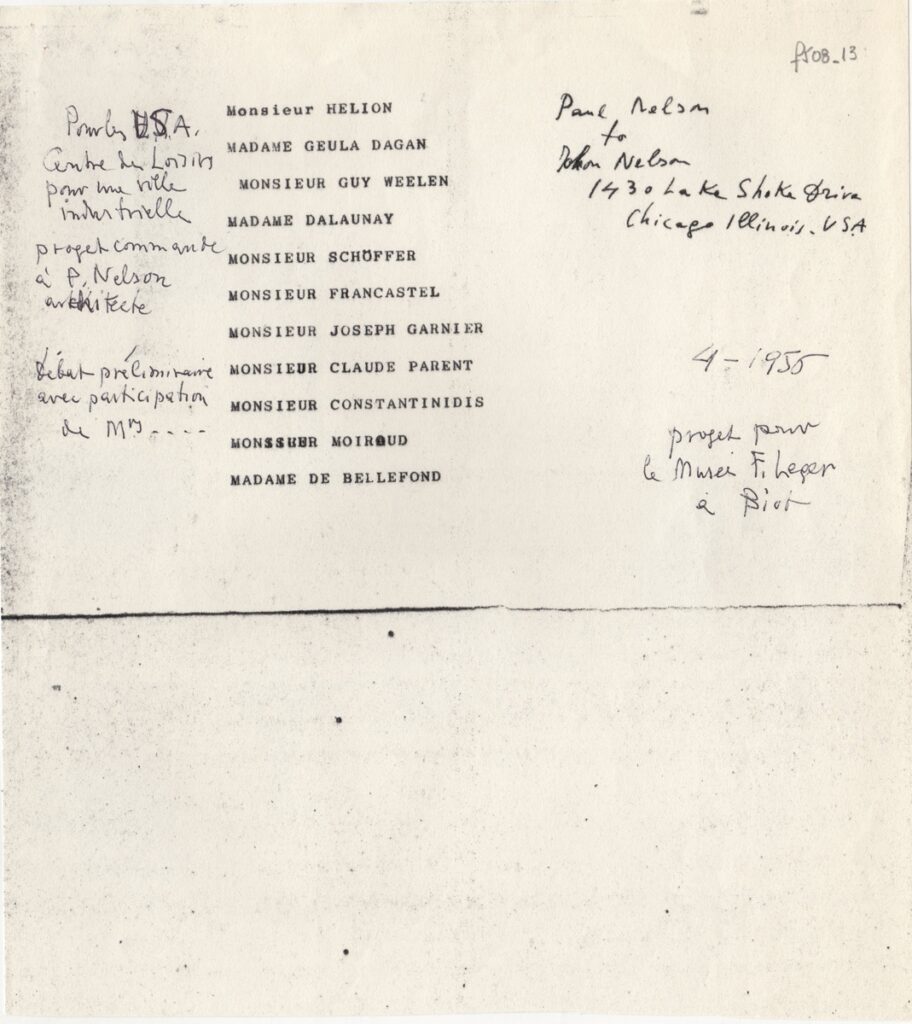 fs08-13
Pour les USA.
Centre de Loisirs
pour une ville
industrielle
proget commande
à P. Nelson
architecte
Débat préliminaire
avec participation
de Mrs ----
Monsieur HELION
MADAME GEULA DAGAN
MONSIEUR GUY WEELEN
MADAME DALAUNAY
MONSIEUR SCHÖFFER
MONSIEUR FRANCASTEL
MONSIEUR JOSEPH GARNIER
MONSIEUR CLAUDE PARENT
MONSIEUR CONSTANTINIDIS
MONSSUER MOIROUD
MADAME DE BELLEFOND
Paul Nelson
to
John Nelson
1430 Lake Shoke Drive
Chicago Illinois. USA
4-1955
proget pour
le Musée F. Leger
à Biot